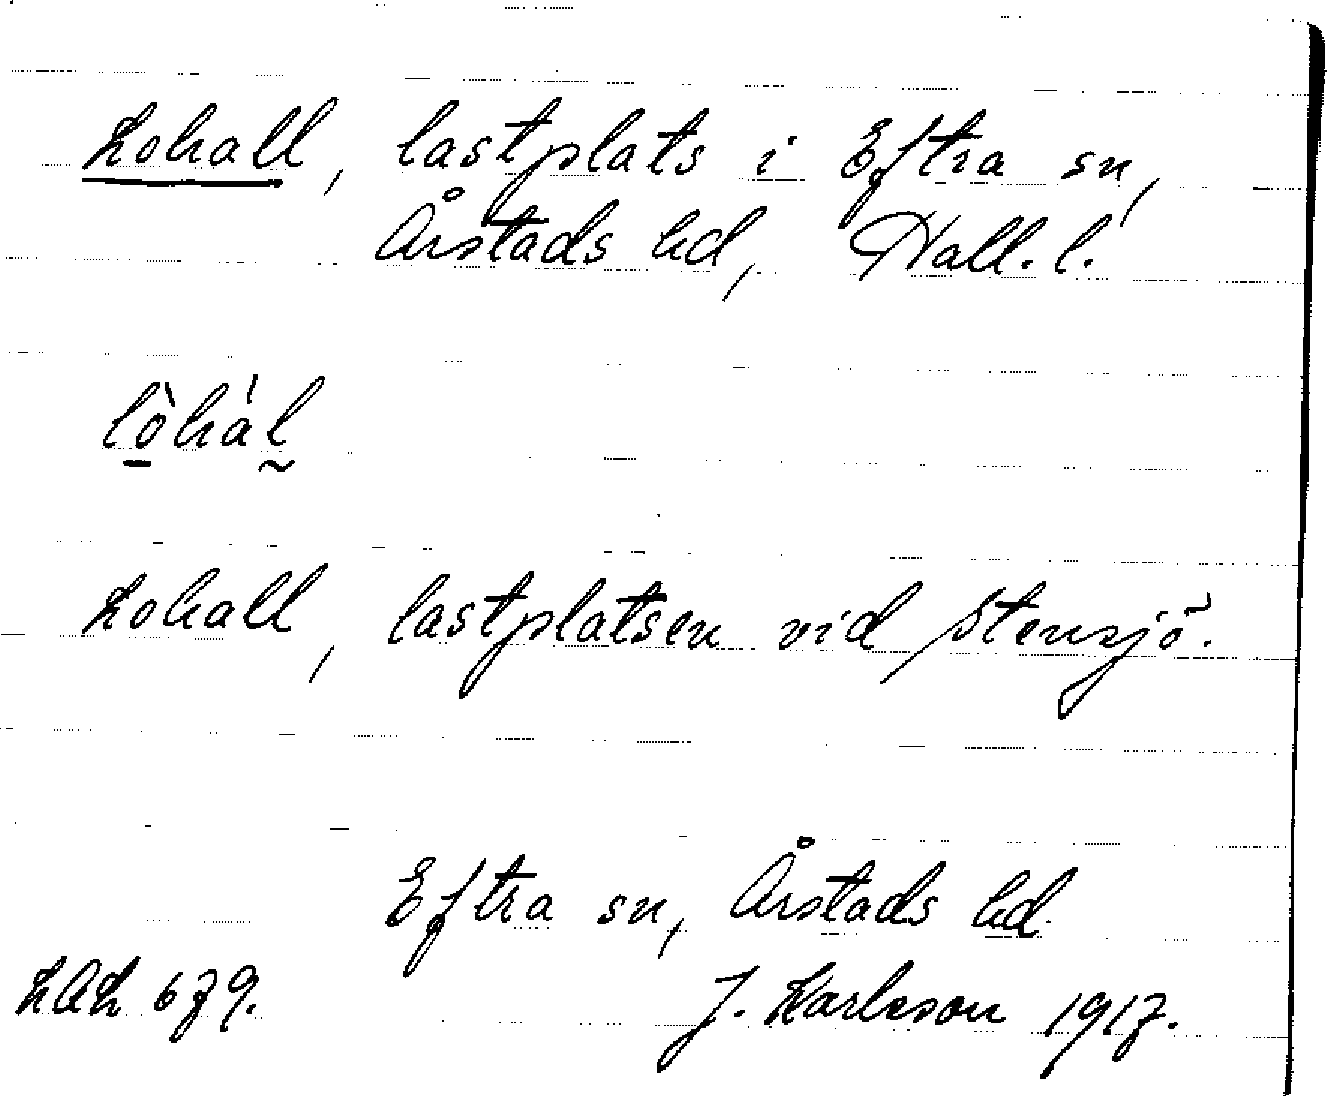 Lohall, lastplats i Eftra sn,
Årstads hd, Hall. l.
lò̱há́l̰
Lohall, lastplatsen vid Stensjö.
Eftra sn, Årstads hd.
LAL 679.
J. Karlsson 1917.